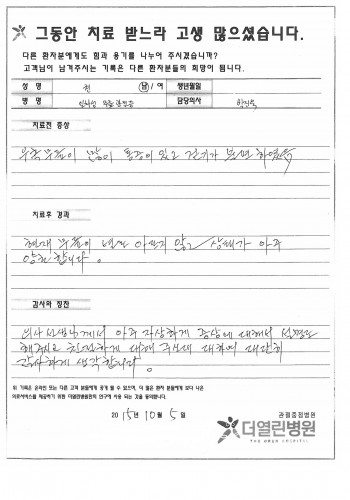 그동안 치료 받느라 고생 많으셨습니다.
다른 환자분에게도 힘과 용기를 나누어 주시겠습니까?
고객님이 남겨주시는 기록은 다른 환자분들의 희망이 됩니다.
성 명 남 / 여 생년월일
병 명 담당의사
치료전 증상
우측 무릎이 많이 통증이 있고 걷기가 불편하였음
치료후 경과
현재 무릎이 아프지 않고 상태가 아주
양호합니다.
감사와 칭찬
의사선생님께서 아주 자상하게 증상에 대해서 설명도
해주시고 친절하게 대해 주신데 대하여 대단히
감사하게 생각합니다.
위 기록은 온라인 또는 다른 고객 분들에게 공개 될 수 있으며, 더 많은 환자 분들에게 보다 나은
의료서비스를 제공하기 위한 더열린병원만의 연구에 사용 되는 것을 동의합니다.
2015년 10월 5일
관절중점병원
더열린병원
THE OPEN HOSPITAL